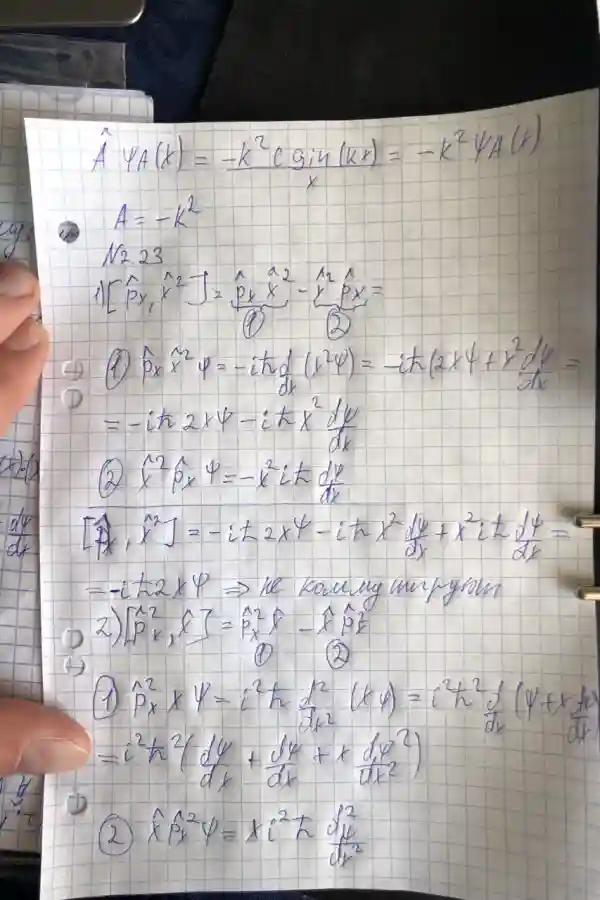 Â ψA(x) = -k² C sin(kx) / x = -k² ψA(x)
A = -k²
№2.23
1) [p̂x, x̂²] = p̂x x̂² - x̂² p̂x =
① ②
① p̂x x̂² ψ = -iħ d/dx (x²ψ) = -iħ(2xψ + x² dψ/dx =
= -iħ 2xψ - iħ x² dψ/dx
② x̂² p̂x ψ = -x² iħ dψ/dx
[p̂x, x̂²] = -iħ 2xψ - iħ x² dψ/dx + x² iħ dψ/dx =
= -iħ2xψ ⇒ не коммутируют
2) [p̂x², x̂] = p̂x² x̂ - x̂ p̂x²
① ②
① p̂x² x ψ = i²ħ d²/dx² (xψ) = i²ħ² d/dx (ψ + x dψ/dx
= i²ħ² (dψ/dx + dψ/dx + x dψ²/dx²)
② x̂ p̂x² ψ = x i² ħ d²ψ/dx²